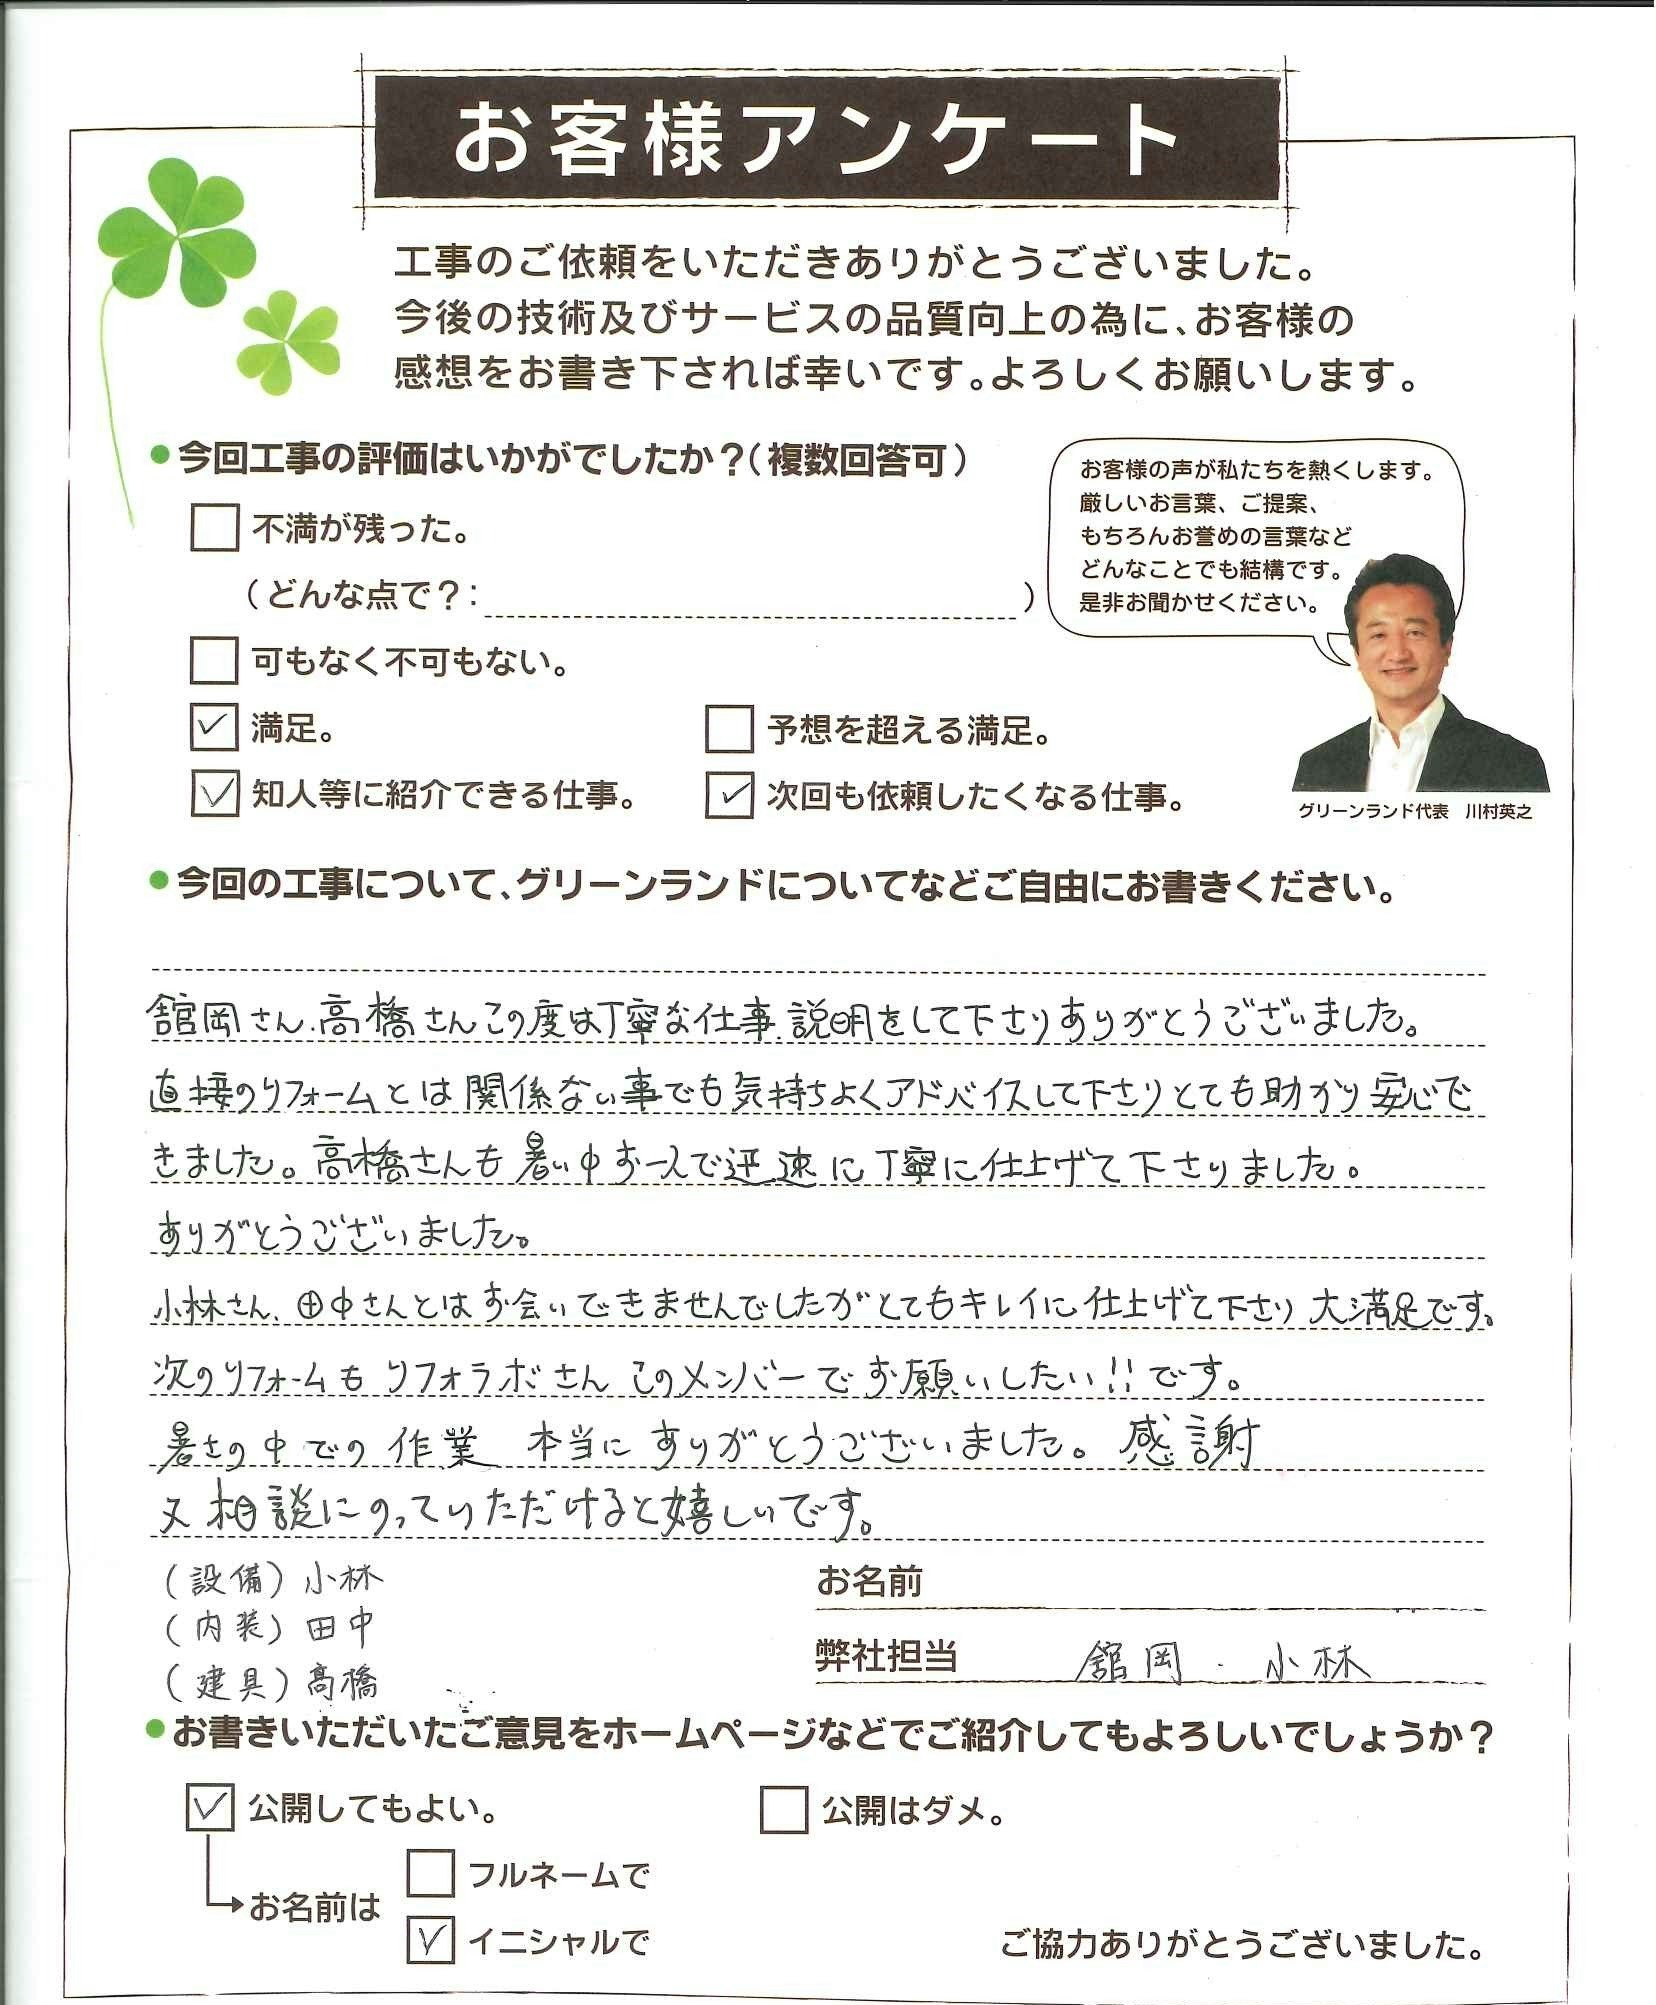 お客様アンケート
工事のご依頼をいただきありがとうございました。
今後の技術及びサービスの品質向上の為に、お客様の
感想をお書き下されば幸いです。よろしくお願いします。
●今回工事の評価はいかがでしたか？（複数回答可）
不満が残った。
（どんな点で？： ）
可もなく不可もない。
✓ 満足。
予想を超える満足。
✓ 知人等に紹介できる仕事。
✓ 次回も依頼したくなる仕事。
お客様の声が私たちを熱くします。
厳しいお言葉、ご提案、
もちろんお誉めの言葉など
どんなことでも結構です。
是非お聞かせください。
グリーンランド代表　川村英之
●今回の工事について、グリーンランドについてなどご自由にお書きください。
舘岡さん、高橋さんこの度は丁寧な仕事、説明をして下さりありがとうございました。
直接のリフォームとは関係ない事でも気持ちよくアドバイスして下さりとても助かり安心で
きました。高橋さんも暑い中お一人で迅速に丁寧に仕上げて下さりました。
ありがとうございました。
小林さん、田中さんとはお会いできませんでしたがとてもキレイに仕上げて下さり大満足です。
次のリフォームもリフォラボさんこのメンバーでお願いしたい!!です。
暑さの中での作業 本当にありがとうございました。感謝
又相談にのっていただけると嬉しいです。
（設備）小林
（内装）田中
（建具）高橋
お名前
弊社担当　舘岡・小林
●お書きいただいたご意見をホームページなどでご紹介してもよろしいでしょうか？
✓ 公開してもよい。
公開はダメ。
お名前は
フルネームで
✓ イニシャルで
ご協力ありがとうございました。